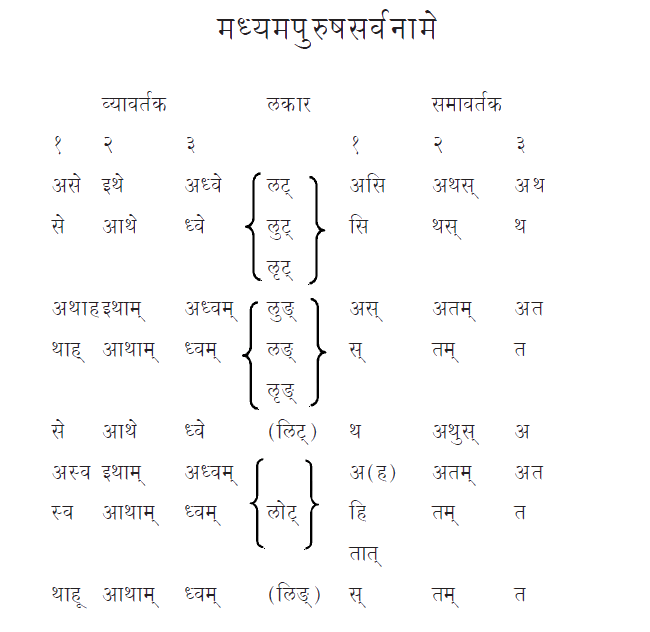 मध्यमपुरुषसर्वनामे
व्यावर्तक लकार समावर्तक
१ २ ३ १ २ ३
असे इथे अध्वे लट् असि अथस् अथ
से आथे ध्वे लुट् सि थस् थ
लृट्
अथाह इथाम् अध्वम् लुङ् अस् अतम् अत
थाह् आथाम् ध्वम् लङ् स् तम् त
लृङ्
से आथे ध्वे (लिट्) थ अथुस् अ
अस्व इथाम् अध्वम् अ(ह) अतम् अत
स्व आथाम् ध्वम् लोट् हि तम् त
तात्
थाहू आथाम् ध्वम् (लिङ्) स् तम् त